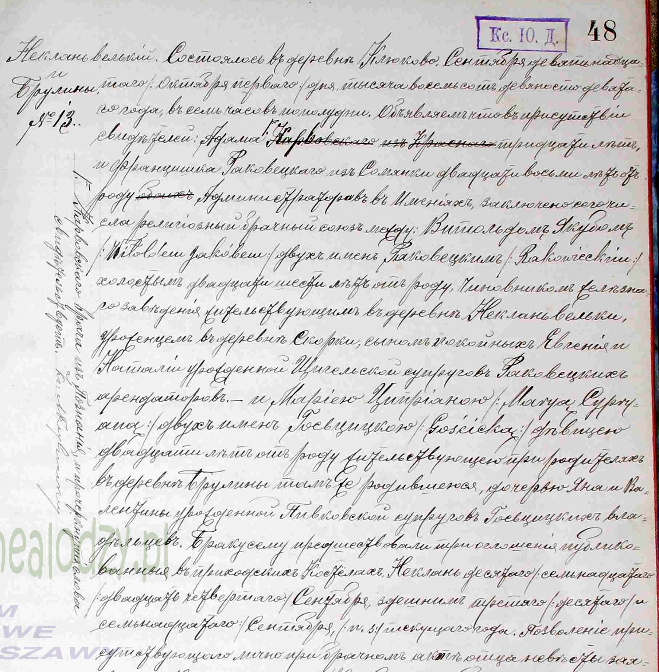 Кс. Ю. Д.
48
Неклань велькій. Состоялось въ деревнѣ Клюково, Сентября девятнадца-
и
Брулины
таго /: Октября перваго :/ дня, тысяча восемьсотъ девяносто девята-
№ 13.
го года, въ семь часовъ пополудни. Объявляемъ что въ присутствіи
свидѣтелей: Адама Карвовскаго изъ тридцати лѣтъ,
и Францишка Раковецкаго изъ двадцати восьми лѣтъ отъ
роду Администраторовъ въ Имѣніяхъ, заключено сего чи-
сла религіозный брачный союзъ между: Витольдомъ Якубомъ
/: Witoldem Jakóbem :/ двухъ именъ Раковецкимъ /: Rakowieckim :/
холостымъ двадцати шести лѣтъ отъ роду, Чиновникомъ
заведенія жительствующимъ въ деревнѣ Неклань вельки,
урожденцемъ въ деревнѣ Скорки, сыномъ покойныхъ Евгенія и
Наталіи урожденной супруговъ Раковецкихъ
арендаторовъ. – и Маріею Ципріаною /: Marya Cypry-
ana :/ двухъ именъ Госьцицкою /: Gościcka :/ дѣвицею
двадцати лѣтъ отъ роду жительствующею при родителяхъ
въ деревнѣ Брулины тамъ же родившеюся, дочерью Яна и Ва-
лентины урожденной Пивковской супруговъ Госьцицкихъ вла-
дѣльцевъ. Браку сему предшествовали три оглашенія публико-
ванныя въ приходскихъ Костелахъ, Неклань десятаго /: семнадцатаго
/: двадцать четвертаго :/ Сентября, здешнимъ третяго /: десятаго :/ и
семьнадцатаго :/ Сентября, /: н. s :/ текущаго года. Позволеніе при-
сутствующаго лично при брачномъ актѣ отца новобрачная
Г. Карвовскаго врача изъ Познанія
свидѣтельствуетъ.
nealodzy.pl